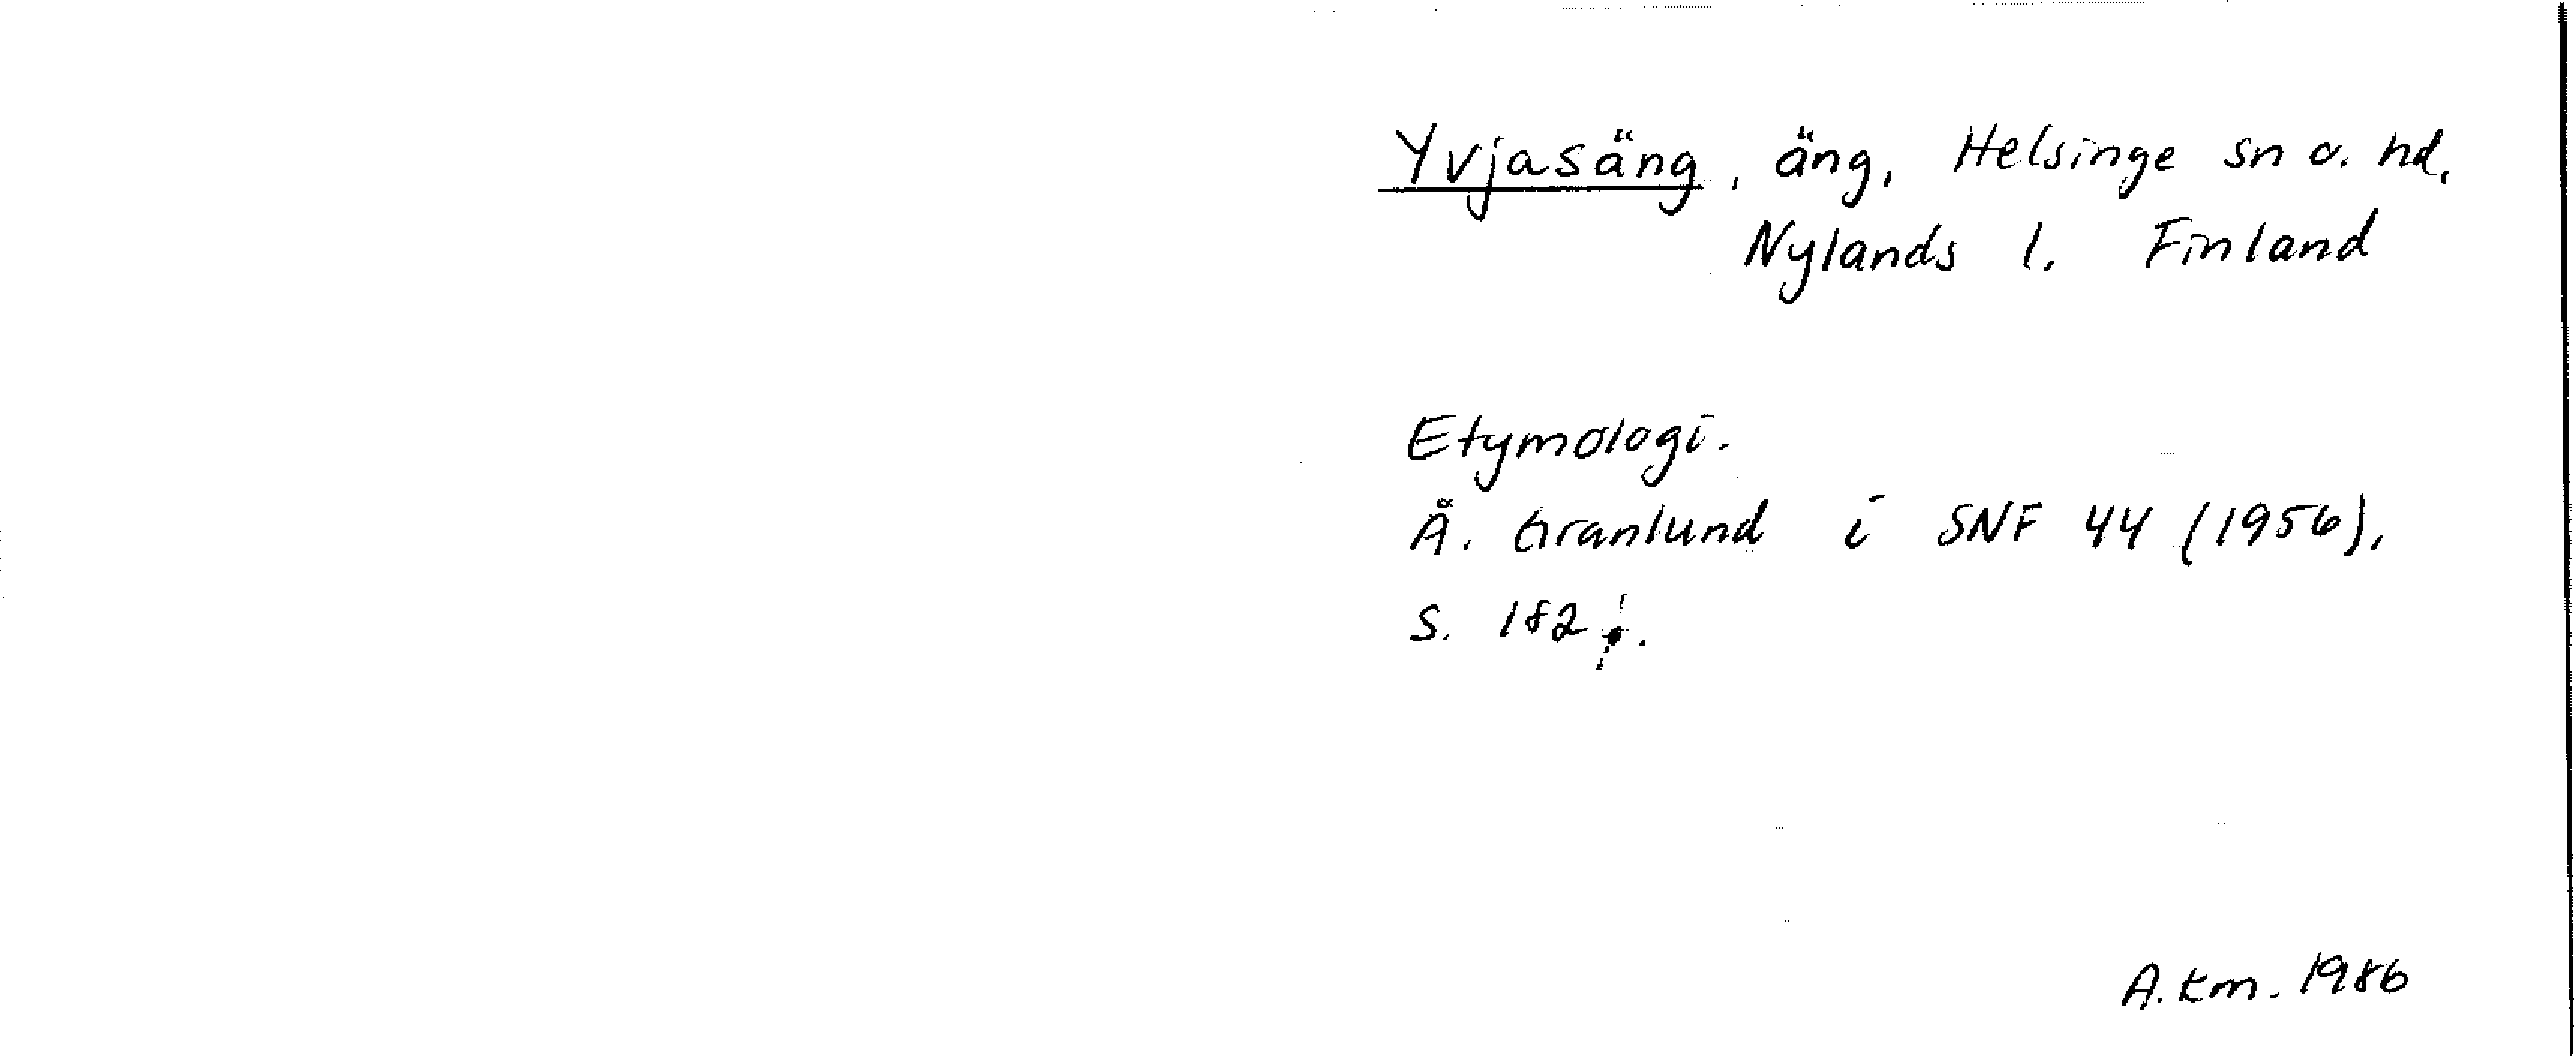 Yvjasäng, äng, Helsinge sn o. hd,
Nylands l. Finland
Etymologi.
Å. Granlund i SNF 44 (1956),
s. 182 f.
A.km. 1986